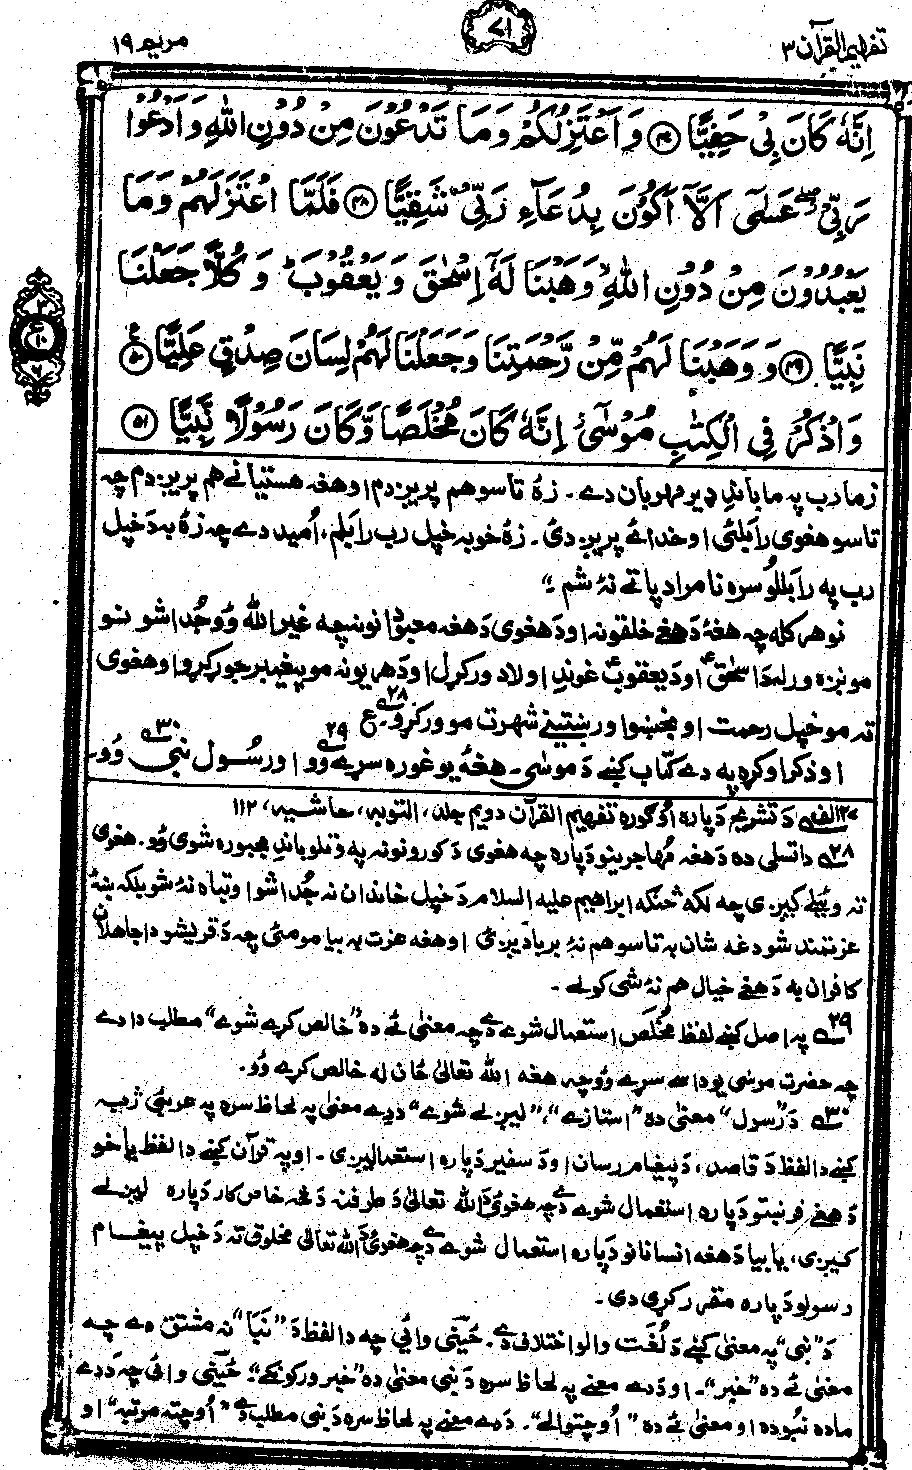 تفهيم القرآن ۳
۷۱
مريم ۱۹
اِنَّهٗ كَانَ بِیْ حَفِيًّا ﴿۴۷﴾ وَ اَعْتَزِلُكُمْ وَمَا تَدْعُوْنَ مِنْ دُوْنِ اللّٰهِ وَ اَدْعُوْا
رَبِّیْ ۖ عَسٰۤی اَلَّاۤ اَكُوْنَ بِدُعَآءِ رَبِّیْ شَقِيًّا ﴿۴۸﴾ فَلَمَّا اعْتَزَلَهُمْ وَمَا
يَعْبُدُوْنَ مِنْ دُوْنِ اللّٰهِ ۙ وَهَبْنَا لَهٗۤ اِسْحٰقَ وَ يَعْقُوْبَ ؕ وَ كُلًّا جَعَلْنَا
نَبِيًّا ﴿۴۹﴾ وَ وَهَبْنَا لَهُمْ مِّنْ رَّحْمَتِنَا وَجَعَلْنَا لَهُمْ لِسَانَ صِدْقٍ عَلِيًّا ﴿۵۰﴾
وَ اذْكُرْ فِی الْكِتٰبِ مُوْسٰۤی ۫ اِنَّهٗ كَانَ مُخْلَصًا وَّ كَانَ رَسُوْلًا نَّبِيًّا ﴿۵۱﴾
زما رب په ما باندې ډير مهربان دے ۔ زۀ تاسو هم پريږدم او هغه هستيانې هم پريږدم چه
تاسو هغوی رابلئ او خدائے پريږدئ ۔ زۀ خو به خپل رب رابلم، اُميد دے چه زۀ به دَ خپل
رب په رابللو سره نامراد پاتے نۀ شم ؛“
نو هر کله چه هغۀ دَ هغے خلقونه او دَ هغوی دَ هغه معبودانو نه چه غير الله وُو جُدا شو نو
مونږه ورله دَ اسحٰق او دَ يعقوب غوندې اولاد ورکړل او دَ هر يو نه مو پيغمبر جوړ کړو او هغوی
ته مو خپل رحمت اوبخښلو او ريښتينے شهرت مو ورکړو ۔ ۲۸ ع
او ذکر اوکړه په دے کتاب کښے دَ موسٰی ۔ هغۀ يو غوره سړے ۲۹ وُو او رسُول نبی ۳۰ وُو ۔
۲۷ الف دَ تشريح دَ پاره اوګوره تفهيم القرآن دويم جلد، التوبه، حاشيه، ۱۱۲
۲۸ دا تسلی ده دَ هغه مُهاجرينو دَ پاره چه هغوی دَ کورونو نه په وتلو باندې مجبوره شوی وُو ۔ هغوی
ته وئيلے کيږی چه لکه څنګه ابراهيم عليه السلام دَ خپل خاندان نه جُدا شو او تباه نۀ شو بلکه ښۀ
عزتمند شو دغه شان به تاسو هم نۀ برباديږئ او هغه عزت به بيا مومئ چه دَ قريشو دا جاهلان
کافران به دَ هغے خيال هم نۀ شی کولے ۔
۲۹ په اصل کښے لفظ مُخْلَص استعمال شوے دے چه معنٰی ئے ده ”خالص کړے شوے“ مطلب دا دے
چه حضرت موسٰی يو داسے سړے وُو چه هغه الله تعالیٰ ځان له خالص کړے وُو ۔
۳۰ دَ ”رسول“ معنٰی ده ”استازے“، ”ليږلے شوے“ دَ دے معنٰی په لحاظ سره په عربی ژبه
کښے دا لفظ دَ قاصد، دَ پيغام رسان او دَ سفير دَ پاره استعماليږی ۔ او په قرآن کښے دا لفظ يا خو
دَ هغے فرښتو دَ پاره استعمال شوے دے چه هغوی دَ الله تعالیٰ دَ طرفنه دَ څه خاص کار دَ پاره ليږلے
کيږی، يا بيا دَ هغه انسانانو دَ پاره استعمال شوے دے چه هغوی الله تعالیٰ مخلوق ته دَ خپل پيغام
رسولو دَ پاره مقرر کړی دی ۔
دَ ”نبی“ په معنٰی کښے دَ لُغت والو اختلاف دے ۔ ځينی وائی چه دا لفظ دَ ”نَبَا“ نه مشتق دے چه
معنٰی ئے ده ”خبر“ ۔ او دَ دے معنے په لحاظ سره دَ نبی معنٰی ده ”خبر ورکونکے“ ځينی وائی چه دَ دے
ماده نبُو ده او معنٰی ئے ده ”اُوچتوالے“ ۔ دَ دے معنے په لحاظ سره دَ نبی مطلب دے ”اُوچته مرتبه“ او